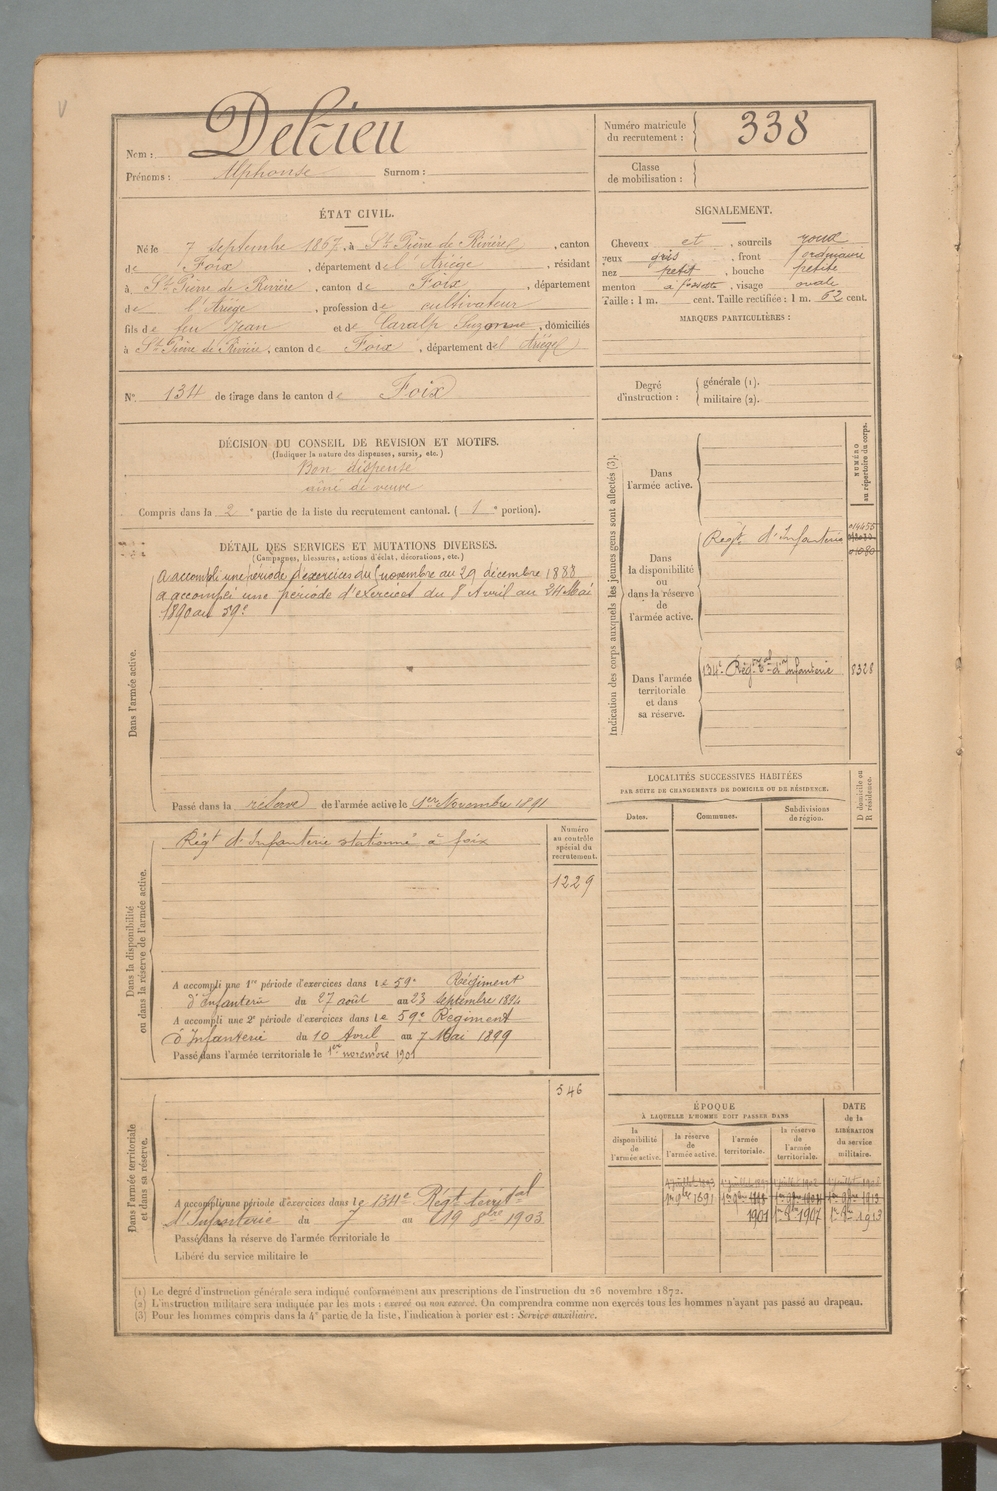 Nom : Delrieu
Prénoms : Alphonse Surnom :
Numéro matricule
du recrutement : 338
Classe
de mobilisation :
ÉTAT CIVIL.
Né le 7 septembre 1867, à St Pierre de Rivière, canton
de Foix, département de l'Ariège, résidant
à St Pierre de Rivière, canton de Foix, département
de l'Ariège, profession de cultivateur
fils de feu Jean et de Caralp Suzanne, domiciliés
à St Pierre de Rivière, canton de Foix, département de l'Ariège
SIGNALEMENT.
Cheveux et, sourcils roux
yeux gris, front ordinaire
nez petit, bouche petite
menton à fossette, visage ovale
Taille : 1 m. cent. Taille rectifiée : 1 m. 62 cent.
MARQUES PARTICULIÈRES :
N° 134 de tirage dans le canton de Foix
Degré
d'instruction :
générale (1).
militaire (2).
DÉCISION DU CONSEIL DE REVISION ET MOTIFS.
(Indiquer la nature des dispenses, sursis, etc.)
Bon dispensé
aîné de veuve
Compris dans la 2e partie de la liste du recrutement cantonal. (1e portion).
DÉTAIL DES SERVICES ET MUTATIONS DIVERSES.
(Campagnes, blessures, actions d'éclat, décorations, etc.)
Dans l'armée active.
a accompli une période d'exercices du novembre au 29 décembre 1888
a accompli une période d'exercices du 8 Avril au 24 Mai
1890 au 59e
Passé dans la réserve de l'armée active le 1er Novembre 1891
Indication des corps auxquels les jeunes gens sont affectés (3).
NUMÉRO
au répertoire du corps.
Dans
l'armée active.
Dans
la disponibilité
ou
dans la réserve
de
l'armée active.
Régt d'Infanterie
Dans l'armée
territoriale
et dans
sa réserve.
134e Régt Tal d'Infanterie 8328
Dans la disponibilité
ou dans la réserve de l'armée active.
Régt d'Infanterie stationné à foix
Numéro
au contrôle
spécial du
recrutement.
1229
A accompli une 1re période d'exercices dans le 59e Régiment
d'Infanterie du 27 août au 23 septembre 1894
A accompli une 2e période d'exercices dans le 59e Régiment
d'Infanterie du 10 Avril au 7 Mai 1899
Passé dans l'armée territoriale le 1er novembre 1901
LOCALITÉS SUCCESSIVES HABITÉES
PAR SUITE DE CHANGEMENTS DE DOMICILE OU DE RÉSIDENCE.
D domicile ou
R résidence.
Dates.
Communes.
Subdivisions
de région.
Dans l'armée territoriale
et dans sa réserve.
546
A accompli une période d'exercices dans le 134e Régt territal
d'Infanterie du 7 au 19 8bre 1903
Passé dans la réserve de l'armée territoriale le
Libéré du service militaire le
ÉPOQUE
À LAQUELLE L'HOMME DOIT PASSER DANS
la
disponibilité
de
l'armée active.
la réserve
de
l'armée active.
l'armée
territoriale.
la réserve
de
l'armée
territoriale.
DATE
de la
LIBÉRATION
du service
militaire.
1er 9bre 1891
1901 1er 9bre 1907 1er 9bre 1913
(1) Le degré d'instruction générale sera indiqué conformément aux prescriptions de l'instruction du 26 novembre 1872.
(2) L'instruction militaire sera indiquée par les mots : exercé ou non exercé. On comprendra comme non exercés tous les hommes n'ayant pas passé au drapeau.
(3) Pour les hommes compris dans la 4e partie de la liste, l'indication à porter est : Service auxiliaire.